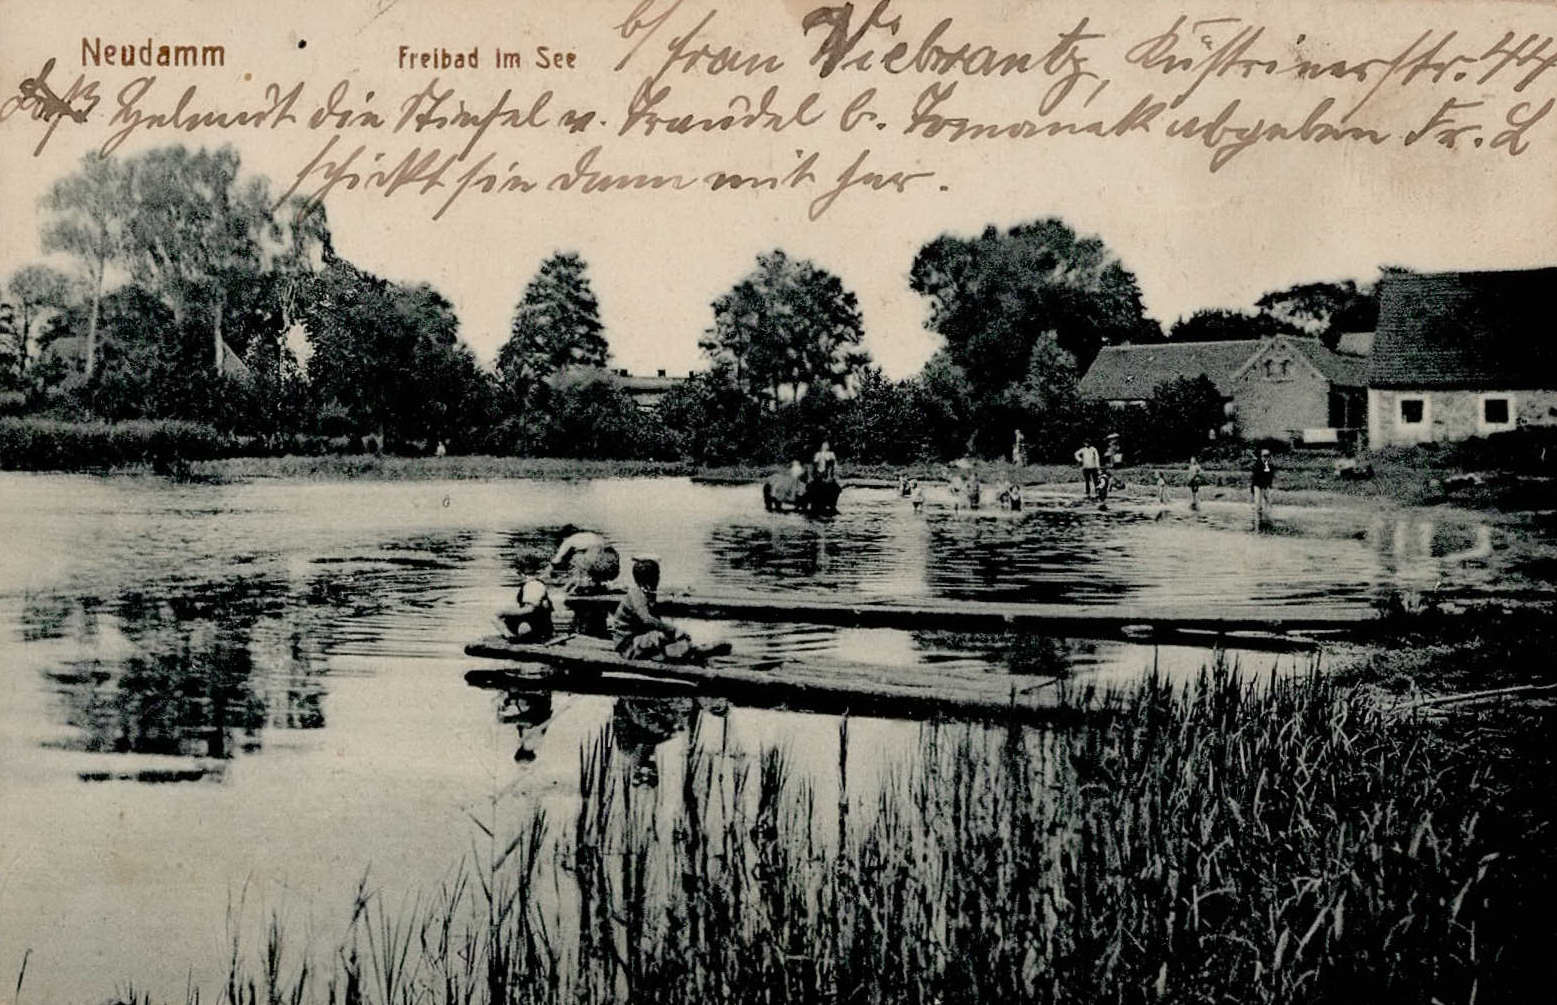 Neudamm
Freibad im See
b/ Frau Wiebrantz, Küstrinerstr. 44
Laß Helmut die Stiefel v. Traudel b. Tomanek abgeben Fr. L
schickt sie dann mit her.